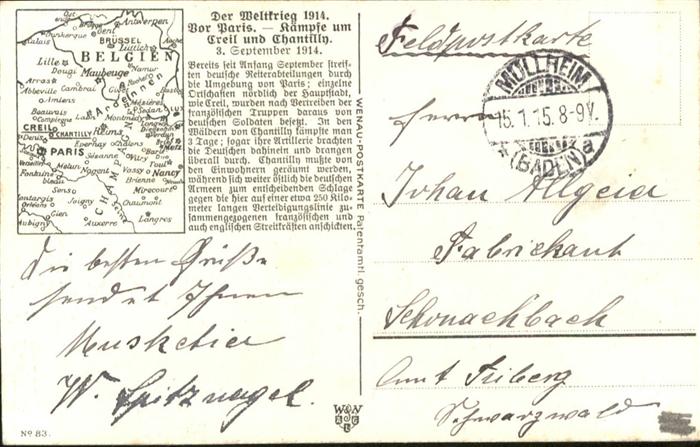 Der Weltkrieg 1914.
Vor Paris. — Kämpfe um
Creil und Chantilly.
3. September 1914.
Bereits seit Anfang September streif-
ten deutsche Reiterabteilungen durch
die Umgebung von Paris; einzelne
Ortschaften nördlich der Hauptstadt,
wie Creil, wurden nach Vertreiben der
französischen Truppen daraus von
deutschen Soldaten besetzt. In den
Wäldern von Chantilly kämpfte man
3 Tage; sogar ihre Artillerie brachten
die Deutschen dahinein und drangen
überall durch. Chantilly mußte von
den Einwohnern geräumt werden,
während sich weiter östlich die deutschen
Armeen zum entscheidenden Schlage
gegen die hier auf einer etwa 250 Kilo-
meter langen Verteidigungslinie zu-
sammengezogenen französischen und
auch englischen Streitkräften anschickten.
Ostende
Brügge
Antwerpen
Dunkerque
Gent
Calais
BRÜSSEL
Lüttich
BELGIEN
Lille
Namur
Douai
Maubeuge
Arras
Abbeville
Cambrai
Ardennen
Amiens
Mézières
Sedan
Beauvais
Compiègne
Laon
Montmédy
CREIL
CHANTILLY
Reims
Verdun
Metz
PARIS
Epernay
Châlons
Versailles
Melun
Sézanne
Vitry
Toul
Nancy
Nogent
Vassy
Fontaine-
bleau
Brienne
Mirecourt
Sens
CHAMPAGNE
Joigny
Chaumont
Montargis
Orléans
Gien
Auxerre
Langres
Aubigny
WENAU-POSTKARTE Patentamtl. gesch.
Die besten Grüße
sendet Ihnen
Musketier
W. Spitznagel.
No 83.
W&N
Feldpostkarte
MÜLLHEIM
15.1.15.8-9V.
*(BADEN)a
Herrn
Johan Allgeia
Fabrickant
Schonachbach
Amt Triberg
Schwarzwald